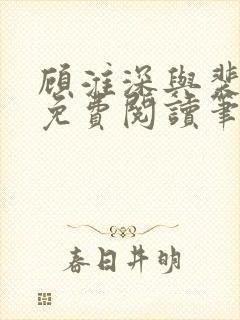 顾淮深與裴
免費閱讀筆
春日井明